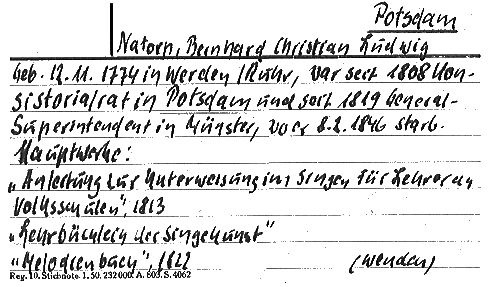 Potsdam
Natorp, Bernhard Christian Ludwig
geb. 12.11.1774 in Werden/Ruhr, war seit 1808 Kon-
sistorialrat in Potsdam und seit 1819 General-
Superintendent in Münster, wo er 8.2.1846 starb.
Hauptwerke:
„Anleitung zur Unterweisung im Singen für Lehrer an
Volksschulen", 1813
„Lehrbüchlein der Singekunst"
„Melodienbuch", 1822 (wenden)
Reg. 10. Stichnote 1. 50. 232000. A. 603. S. 4062